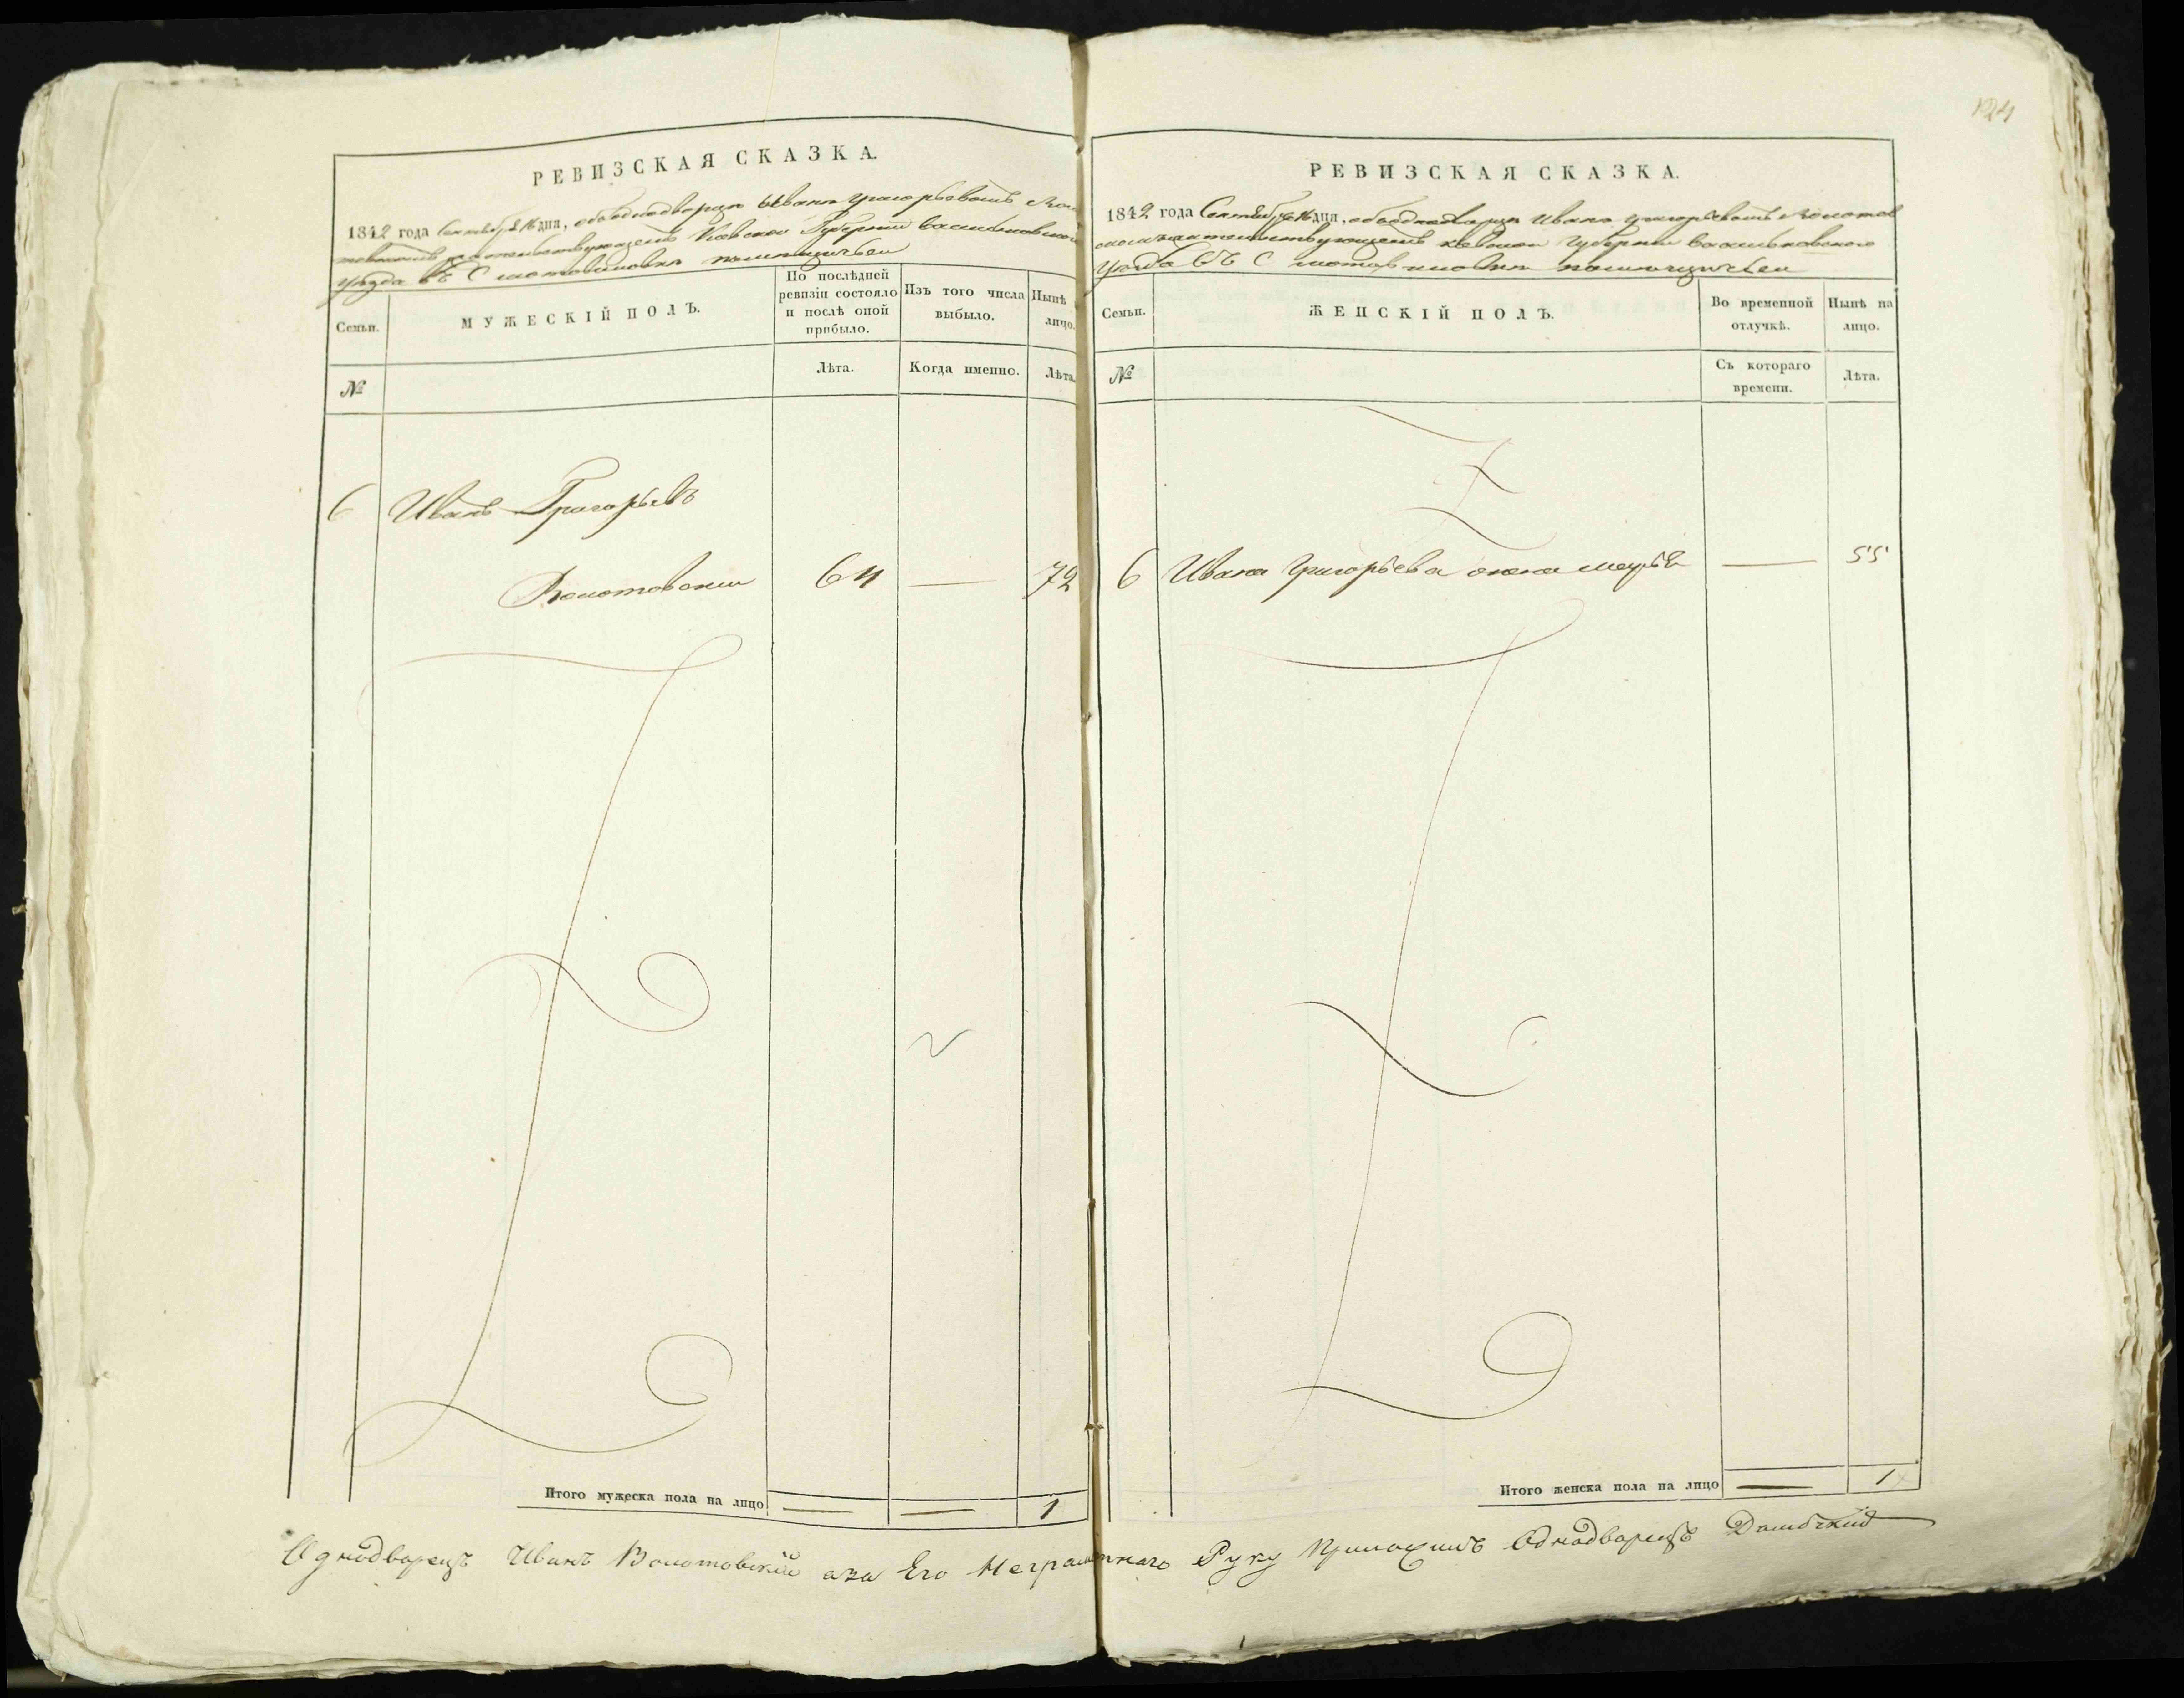 124
РЕВИЗСКАЯ СКАЗКА.
1842 года Сентября 16 дня, объ однодворцѣ Иванѣ Григорьевомъ
жительствующемъ Кіевской Губерніи Васильковскаго
уѣзда въ С помѣщичьей
Семьи.
МУЖЕСКІЙ ПОЛЪ.
По послѣдней ревизіи состояло и послѣ оной прибыло.
Изъ того числа выбыло.
Нынѣ лицо.
№
Лѣта.
Когда именно.
Лѣта.
6 Иванъ Григорьевъ
Волотовскій 64 — 72
Итого мужеска пола на лицо — — 1
РЕВИЗСКАЯ СКАЗКА.
1842 года Сентября 16 дня, объ однодворцѣ Иванѣ Григорьевомъ Волотов
скомъ жительствующемъ Кіевской Губерніи Васильковскаго
уѣзда въ С помѣщичьей
Семьи.
ЖЕНСКІЙ ПОЛЪ.
Во временной отлучкѣ.
Нынѣ на лицо.
№
Съ котораго времени.
Лѣта.
6 Ивана Григорьева жена Марья — 55
Итого женска пола на лицо — 1
Однодворецъ Иванъ Волотовскій аза Его Неграмотнаго Руку Приложилъ Однодворецъ